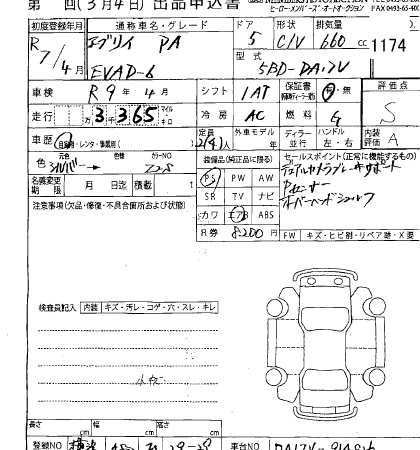 第 回(3月4日) 出品申込書
ヒーローメンバーズ オートオークション FAX 0493-65-400
初度登録年月 通称車名・グレード ドア 形状 排気量
R7/4月 エブリイ PA 5 C/V 660 cc 1174
EVAD-6 型式 5BD-DA17V
車検 R9年4月 シフト 1AT 保証書 有・無 評価点
走行 万3千365 マイル キロ 冷房 AC 燃料 G S
車歴 自家用・レンタ・事業用 定員 2(4)人 外車モデル 年 ディーラー 並行 ハンドル 左・右 内装評価 A
色 元色 シルバー → 色替 カラーNO Z2S
装備品(純正品に限る) セールスポイント(正常に機能するもの)
名義変更期限 月 日迄 積載 t
PS PW AW デュアルカメラブレーキサポート
SR TV ナビ
カワ エアB ABS オーバーヘッドシェルフ
R券 8,200円 FW キズ・ヒビ割・リペア跡・X要
注意事項(欠品・修復・不具合箇所および状態)
検査員記入 内装 キズ・汚レ・コゲ・穴・スレ・キレ
長さ cm 幅 cm 高さ cm
登録NO 車台NO